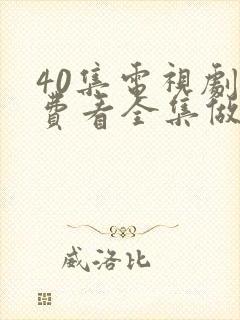 40集電視劇
費看全集做
威洛比